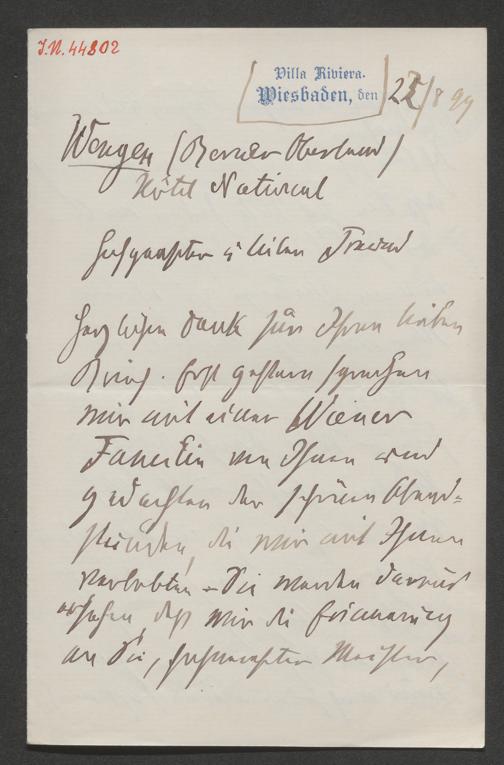 J.N. 44802
Villa Riviera.
Wiesbaden, den 25/8 99
Wengen (Berner Oberland)
Hôtel National
Hochgeehrter u lieber Freund
Herzlichen Dank für Ihren lieben
Brief. Erst gestern sprachen
wir mit einer Wiener
Familie von Ihnen und
gedachten der schönen Abend-
stunden, die wir mit Ihnen
verlebten – Sie werden daraus
ersehen, daß wir die Erinnerung
an Sie, hochgeehrter Meister,